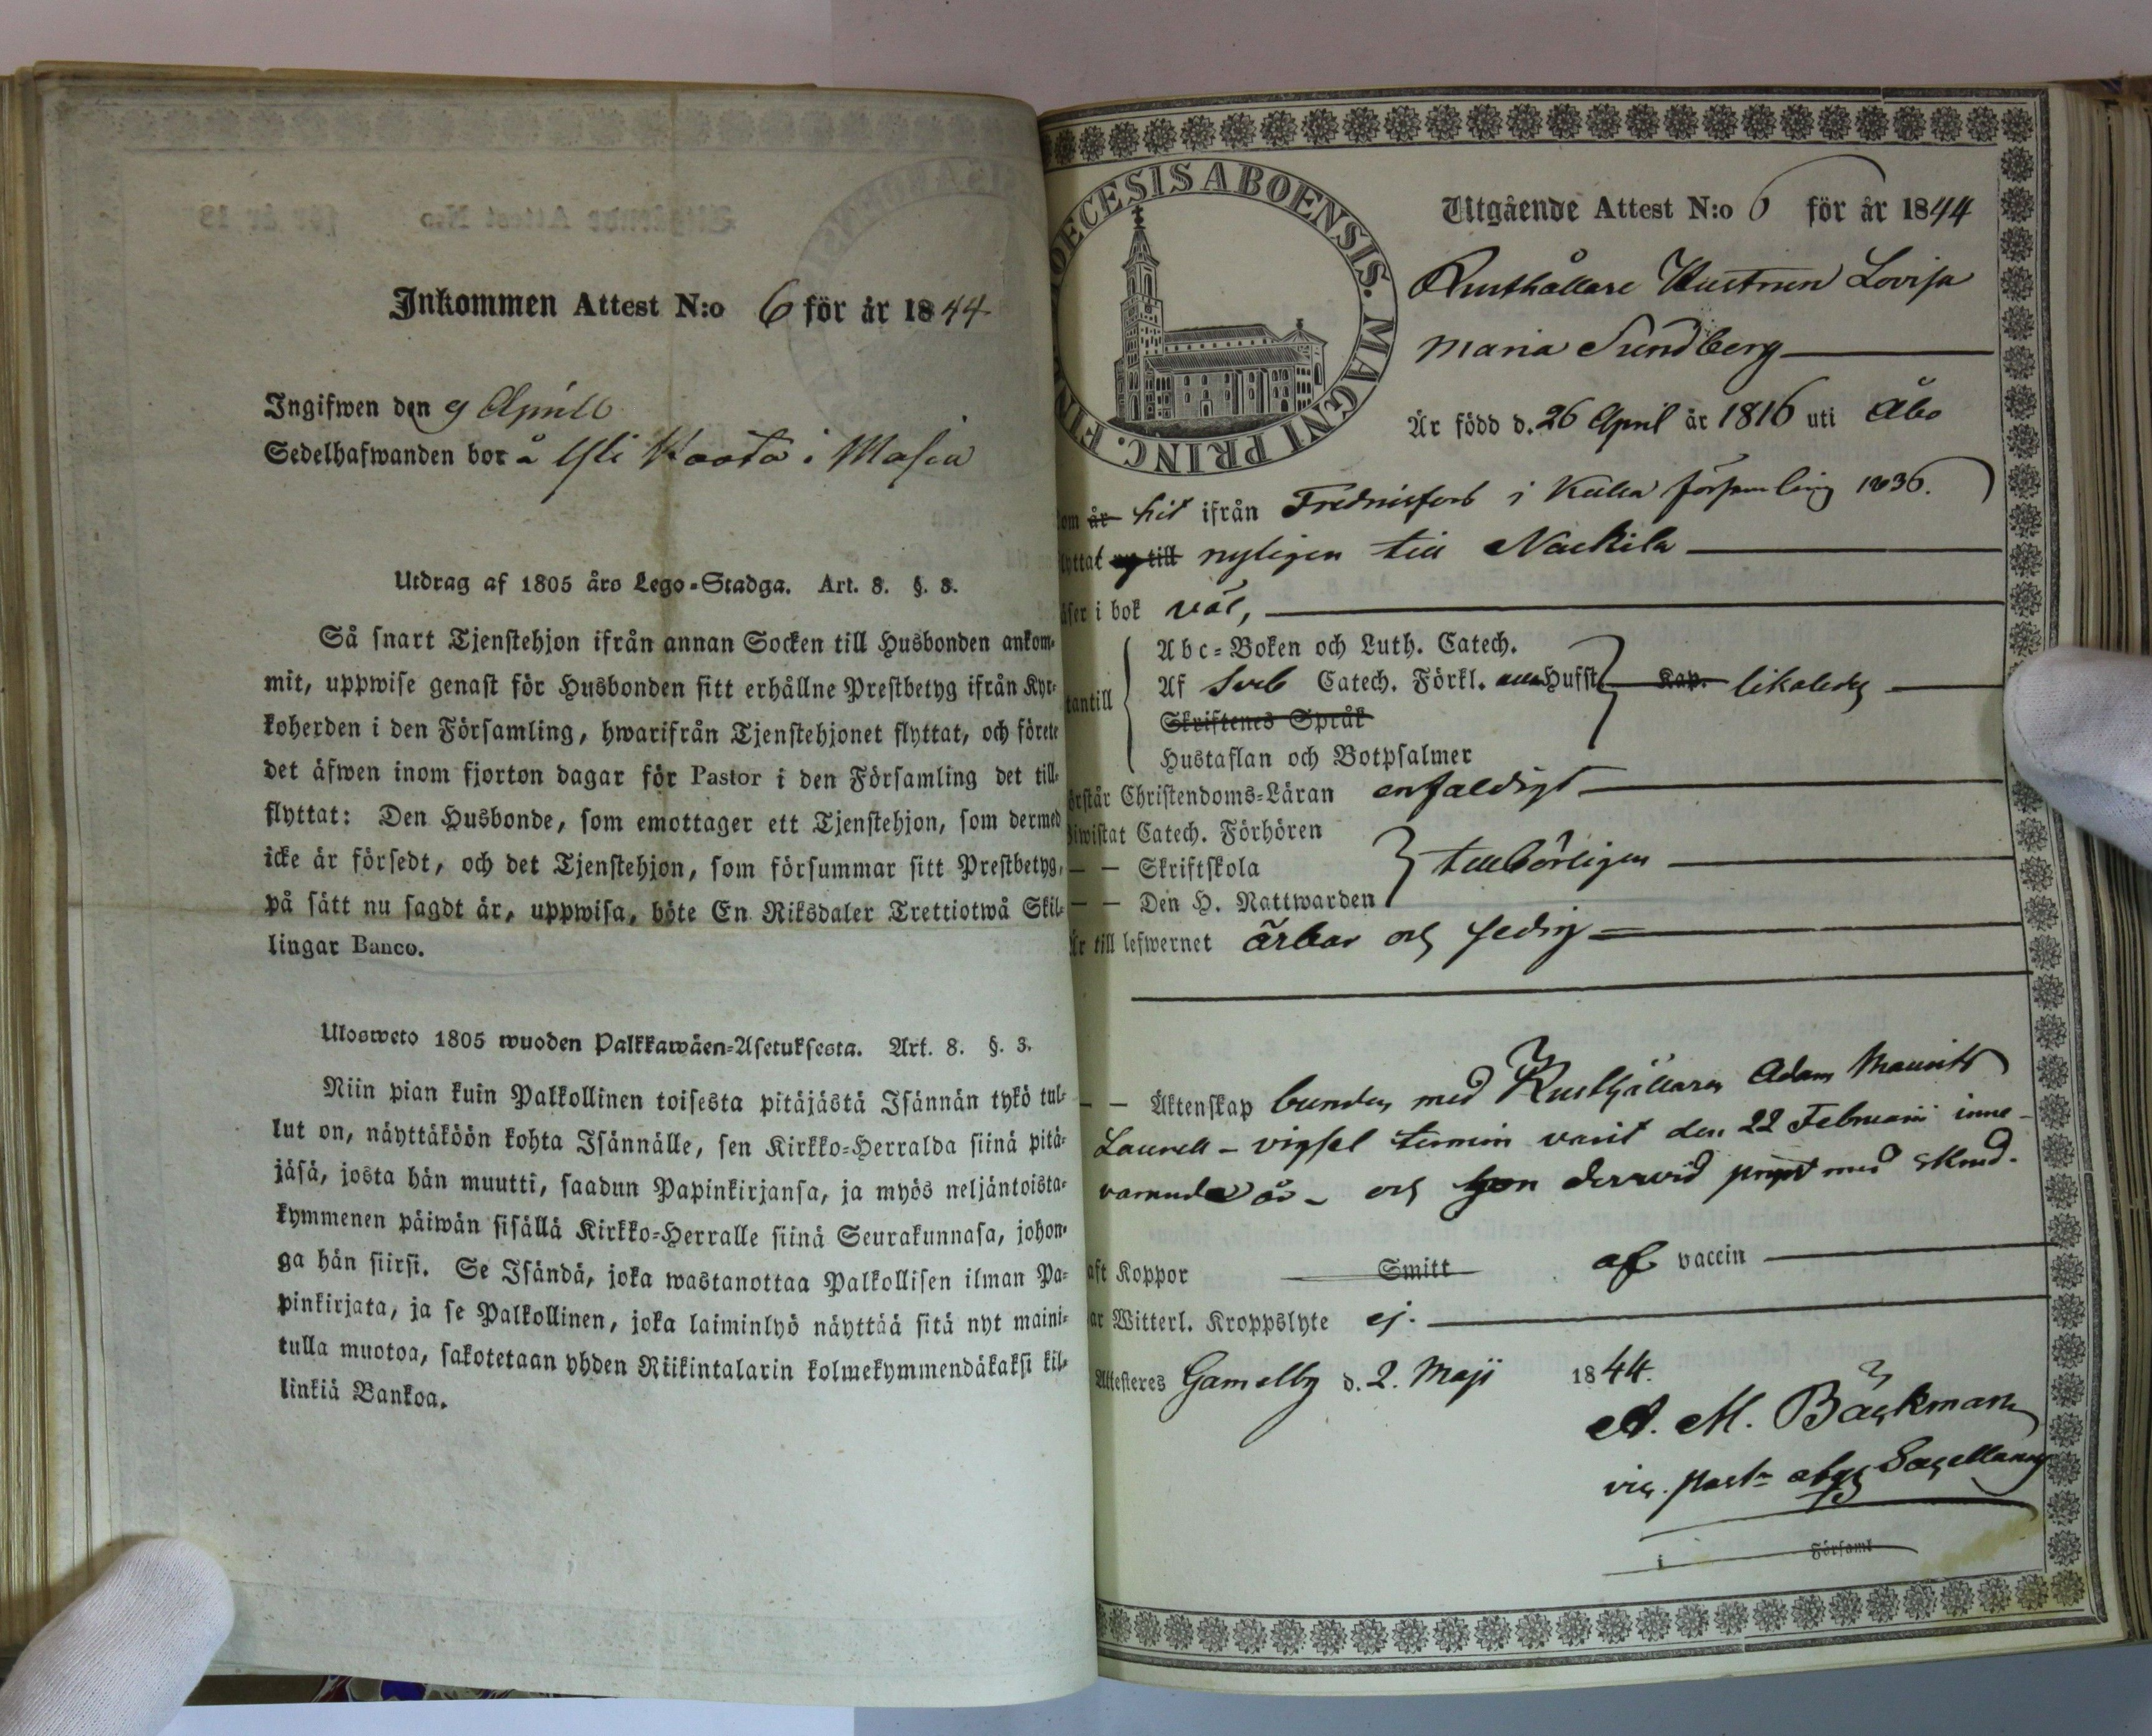 Inkommen Attest N:o 6 för år 1844
Ingifwen den 9 Aprill
Sedelhafwanden bor å Yli i Masia
Utdrag af 1805 års Lego-Stadga. Art. 8. §. 3.
Så snart Tjenstehjon ifrån annan Socken till Husbonden ankom-
mit, uppwise genast för Husbonden sitt erhållne Prestbetyg ifrån Kyr-
koherden i den Församling, hwarifrån Tjenstehjonet flyttat, och förete
det äfwen inom fjorton dagar för Pastor i den Församling det till-
flyttat: Den Husbonde, som emottager ett Tjenstehjon, som dermed
icke är försedt, och det Tjenstehjon, som försummar sitt Prestbetyg,
på sätt nu sagdt är, uppwisa, böte En Riksdaler Trettiotwå Skil-
lingar Banco.
Ulosweto 1805 wuoden Palkkawäen-Asetuksesta. Art. 8. §. 3.
Niin pian kuin Palkollinen toisesta pitäjästä Isännän tykö tul-
lut on, näyttäköön kohta Isännälle, sen Kirkko-Herralda siinä pitä-
jäsä, josta hän muutti, saadun Papinkirjansa, ja myös neljäntoista-
kymmenen päiwän sisällä Kirkko-Herralle siinä Seurakunnasa, johon-
ga hän siirsi. Se Isändä, joka wastanottaa Palkollisen ilman Pa-
pinkirjata, ja se Palkollinen, joka laiminlyö näyttää sitä nyt maini-
tulla muotoa, sakotetaan yhden Riikintalarin kolmekymmendäkaksi kil-
linkiä Bankoa.
DECESIS ABOENSIS. MAGNI PRINC. FIN
Utgående Attest N:o 6 för år 1844
Rusthållare Hustrun Lovisa
Maria Sundberg
Är född d. 26 April år 1816 uti Åbo
om år hit ifrån Fredriksfors i Kulla församling 1836.
lyttat ny till nyligen till Nackila
äser i bok väl,
Abc-Boken och Luth. Catech.
antill Af Sveb Catech. Förkl. Hufst Kap. likaledes
Skriftenes Språk
Hustaflan och Botpsalmer
örstår Christendoms-Läran enfaldigt
iwistat Catech. Förhören
— — Skriftskola tillbörligen
— — Den H. Nattwarden
Är till lefwernet ärbar och sedig
— — Äktenskap bunden med Rusthållaren Adam Maurits
Laurell - vigsel termin varit den 22 Februarii inne-
varande år - och hon dervid med
aft Koppor Smitt af vaccin
ar Witterl. Kroppslyte ej.
Attesteres Gamelby d. 2. Maji 1844.
A. M. Bäckman
vic. past. Sacellan
i Församl